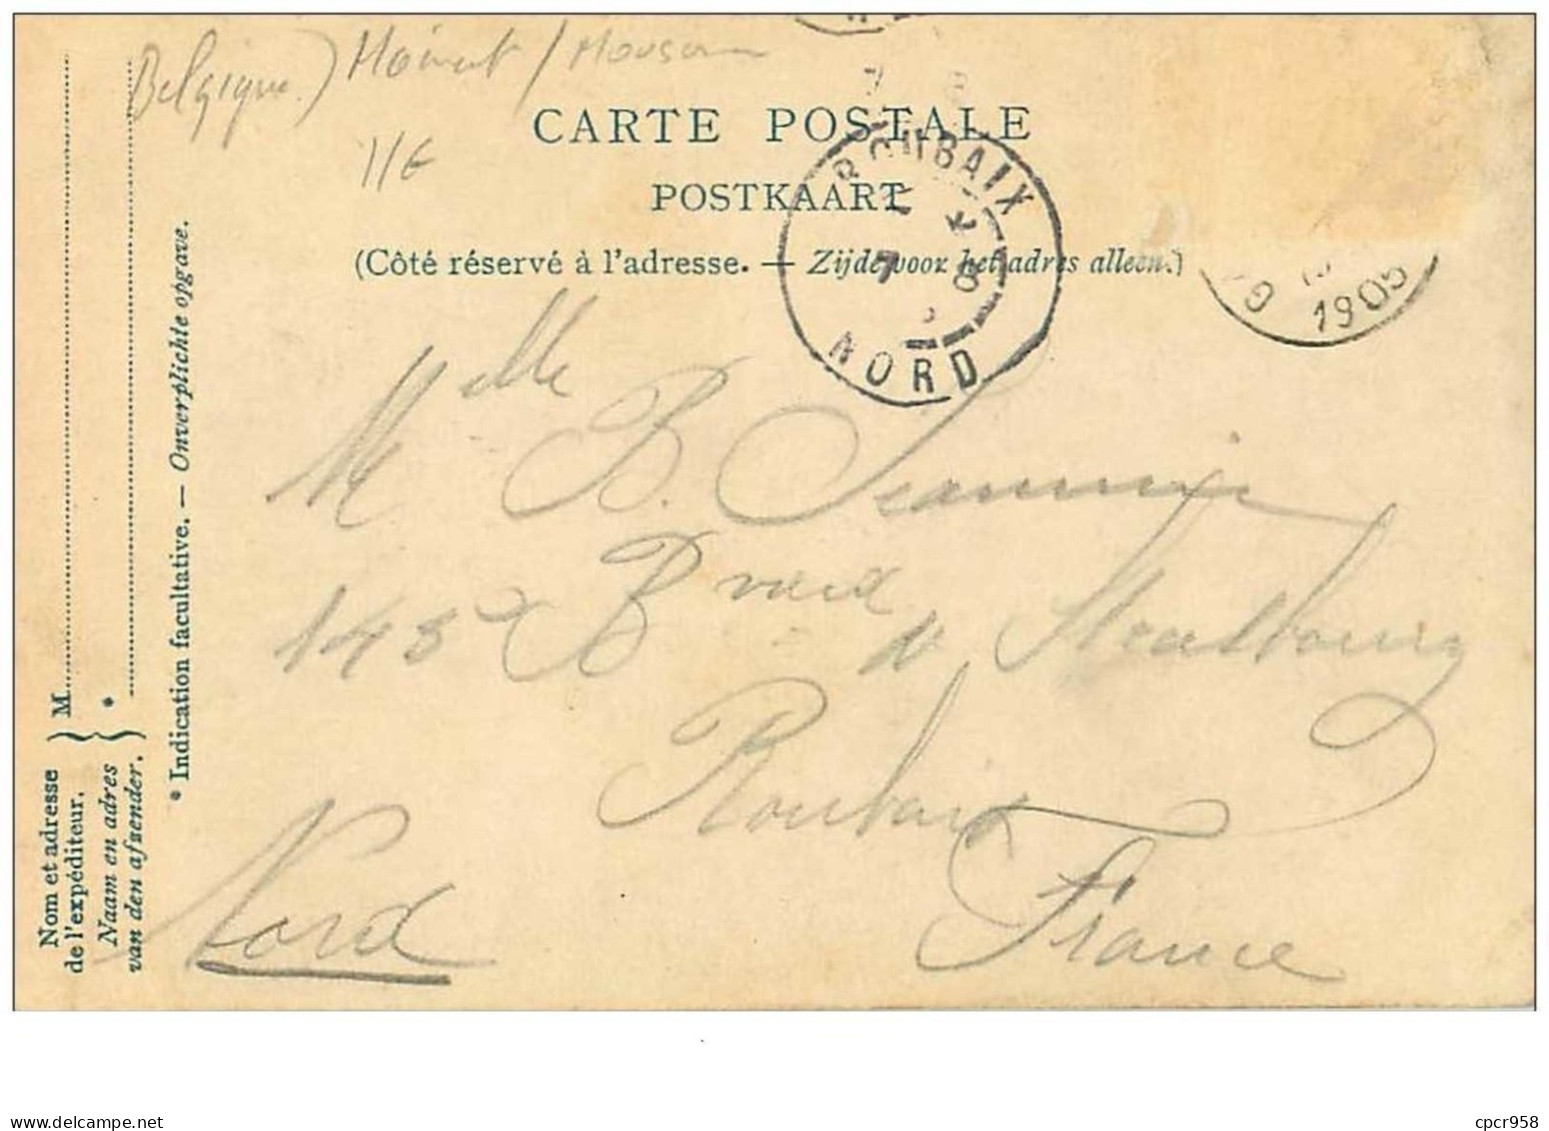 Belgique)
11€
CARTE POSTALE
POSTKAART
(Côté réservé à l'adresse. — Zijde voor het adres alleen.)
ROUBAIX
7 8
NORD
1905
Mlle B.
143 Bvard de Strasbourg
Roubaix
Nord
France
Nom et adresse
de l'expéditeur.
Naam en adres
van den afzender.
M
*
* Indication facultative. — Onverplichte opgave.
cpcr958